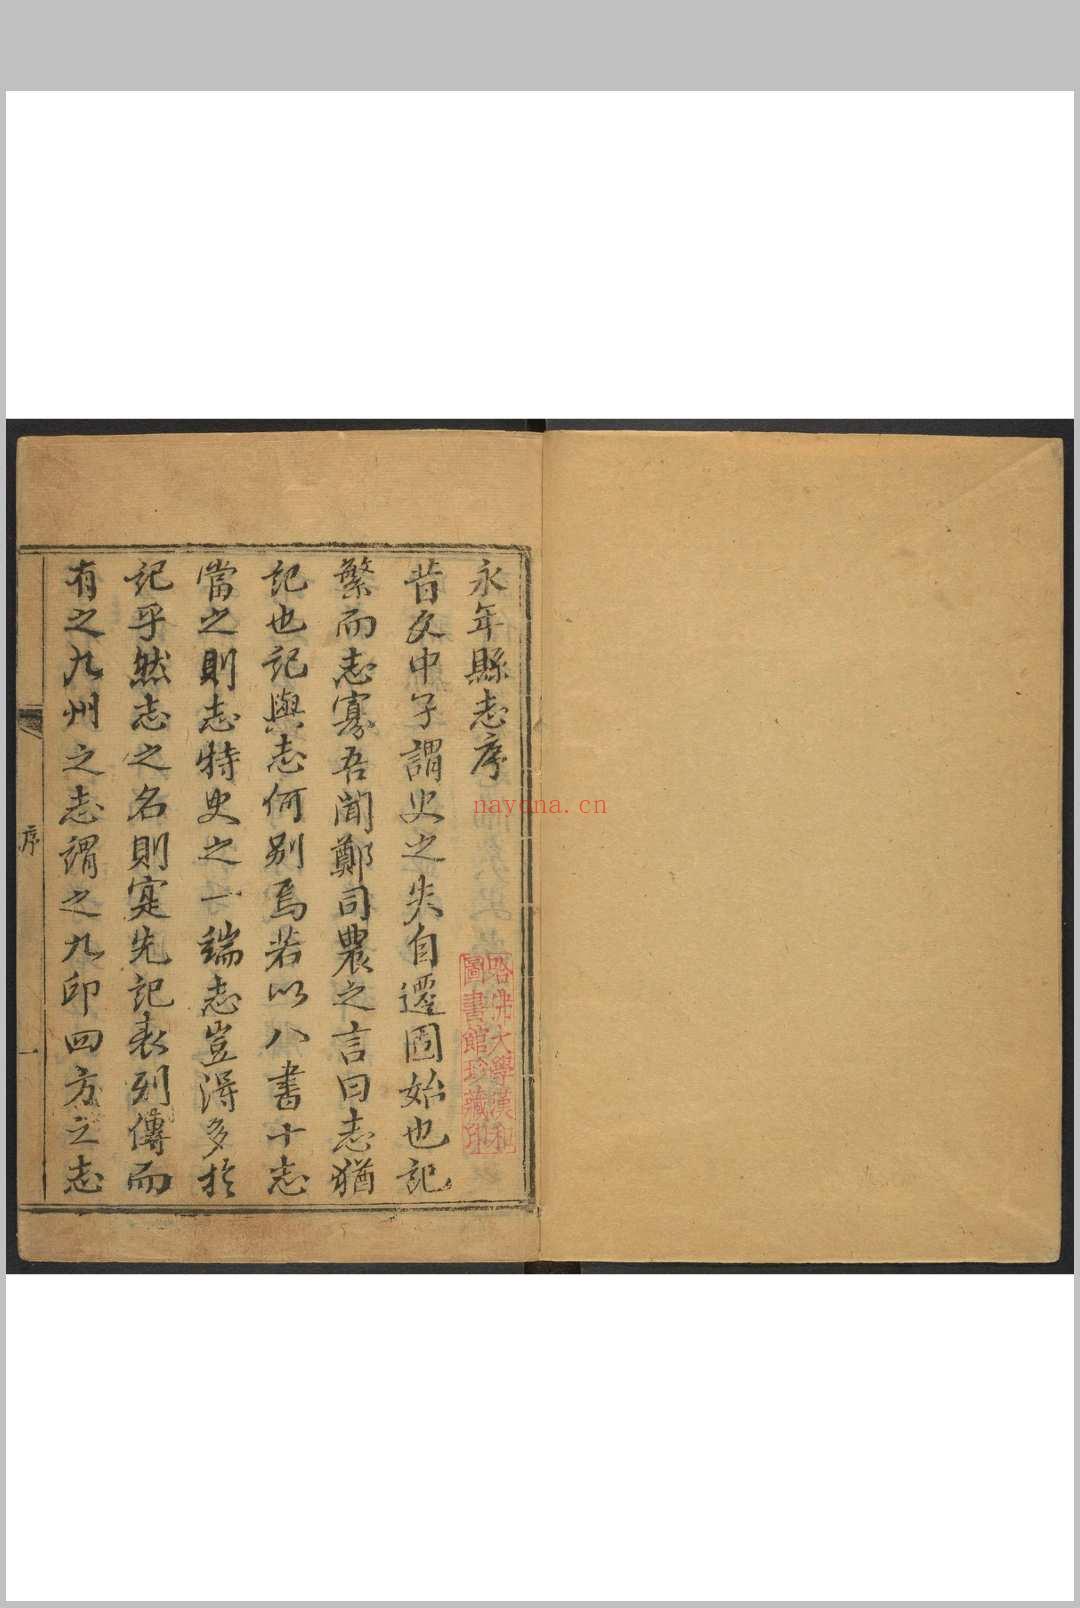 永年縣志序
昔文中子謂史之失自遷固始也記
繁而志寡吾聞鄭司農之言曰志猶
記也記與志何别焉若以八書十志
當之則志特史之一端志豈得多於
記乎然志之名則寔先記表列傳而
有之九州之志謂之九印四方之志
序
一
哈佛大學漢和
圖書館珍藏印
nayona.cn